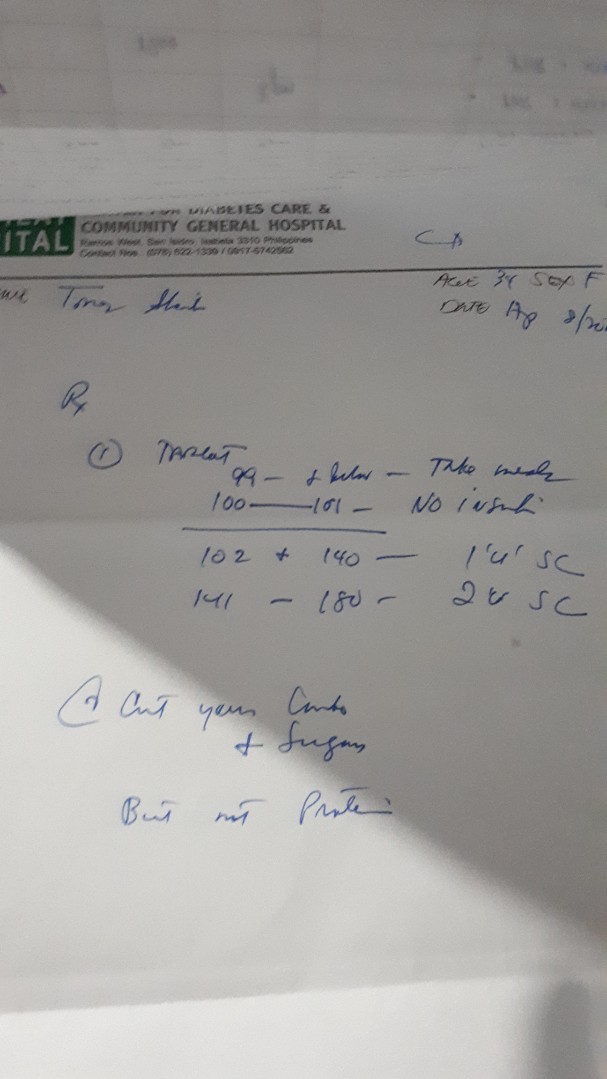 DIABETES CARE &
ITAL COMMUNITY GENERAL HOSPITAL
Ramos West, San Isidro, Isabela 3310 Philippines
Contact Nos. (078) 622-1339 / 0917-5742562
AGE 34 SEX F
DATE Ap 8/20
Rx
① TARGET
99 - & below - Take meals
100 - 101 - No insulin
102 + 140 - 1 'u' SC
141 - 180 - 2 u SC
Cut your Carbo
& Sugar
But not Protein